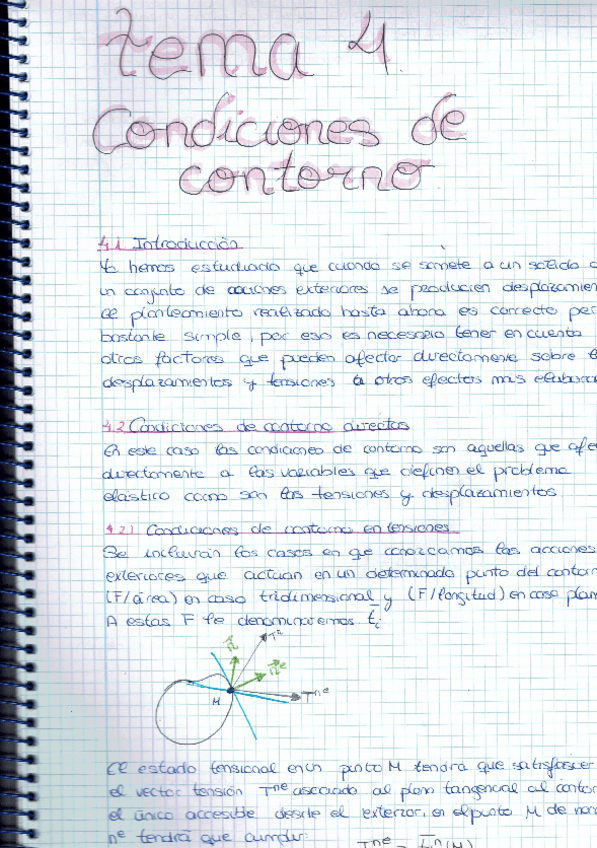 tema 4.
Condiciones de
contorno
4.1 Introducción
Ya hemos estudiado que cuando se somete a un sólido a
un conjunto de acciones exteriores se producien desplazamien
el planteamiento realizado hasta ahora es correcto per
bastante simple, por eso es necesario tener en cuenta
otros factores que pueden afectar directamente sobre
desplazamientos y tensiones a otros efectos mas elabora
4.2 Condiciones de contorno directas
En este caso las condiciones de contorno son aquellas que afe
directamente a las variables que definen el problema
elástico como son las tensiones y desplazamientos
4.2.1 Condiciones de contorno en tensiones
Se incluirán los casos en que conozcamos las acciones
exteriores que actúan en un determinado punto del contor
(F/área) en caso tridimensional y (F/longitud) en caso plan
A estas F le denominaremos t̄i
n T n
n ne
M T ne
El estado tensional en un punto M tendrá que satisfascer
el vector tensión T ne asociado al plano tangencial al contor
el único accesible desde el exterior, en el punto M de nor
ne tendrá que cumplir:
T ne = t̄n(M)